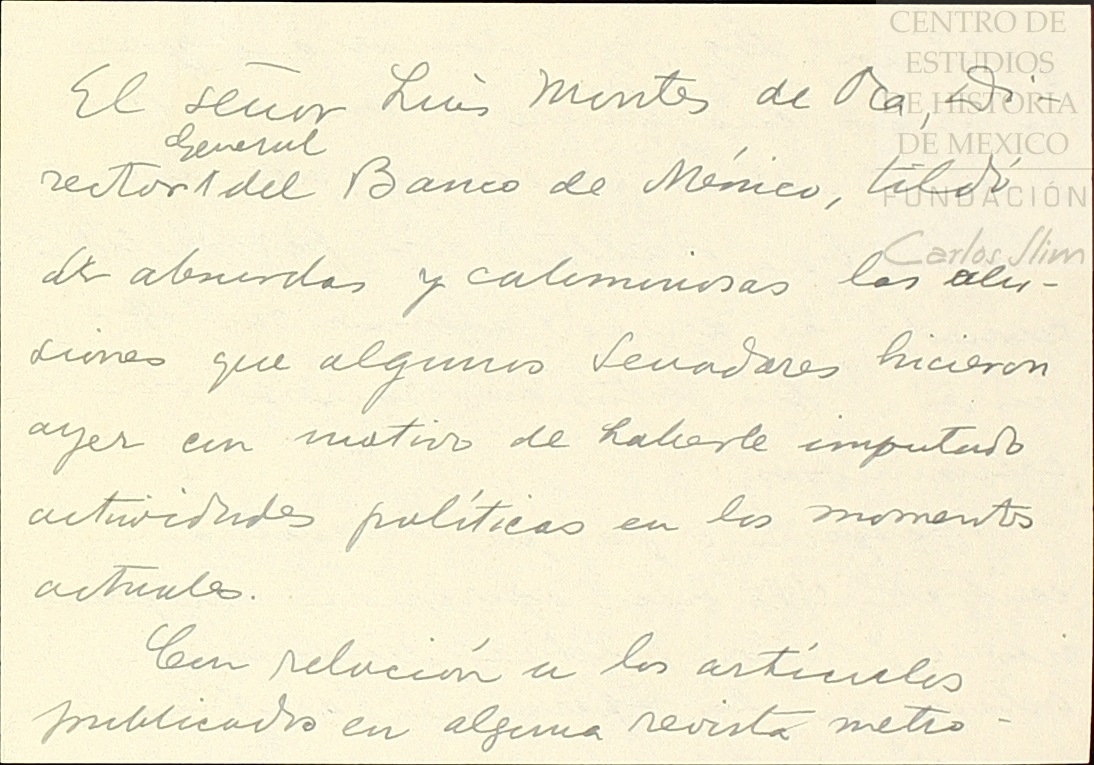 CENTRO DE
ESTUDIOS
DE HISTORIA
DE MEXICO
FUNDACIÓN
Carlos Slim
El señor Luis Montes de Oca, Di-
General
rector del Banco de México, tildó
de absurdas y calumniosas las alu-
siones que algunos Senadores hicieron
ayer con motivo de haberle imputado
actividades políticas en los momentos
actuales.
Con relación a los artículos
publicados en alguna revista metro-